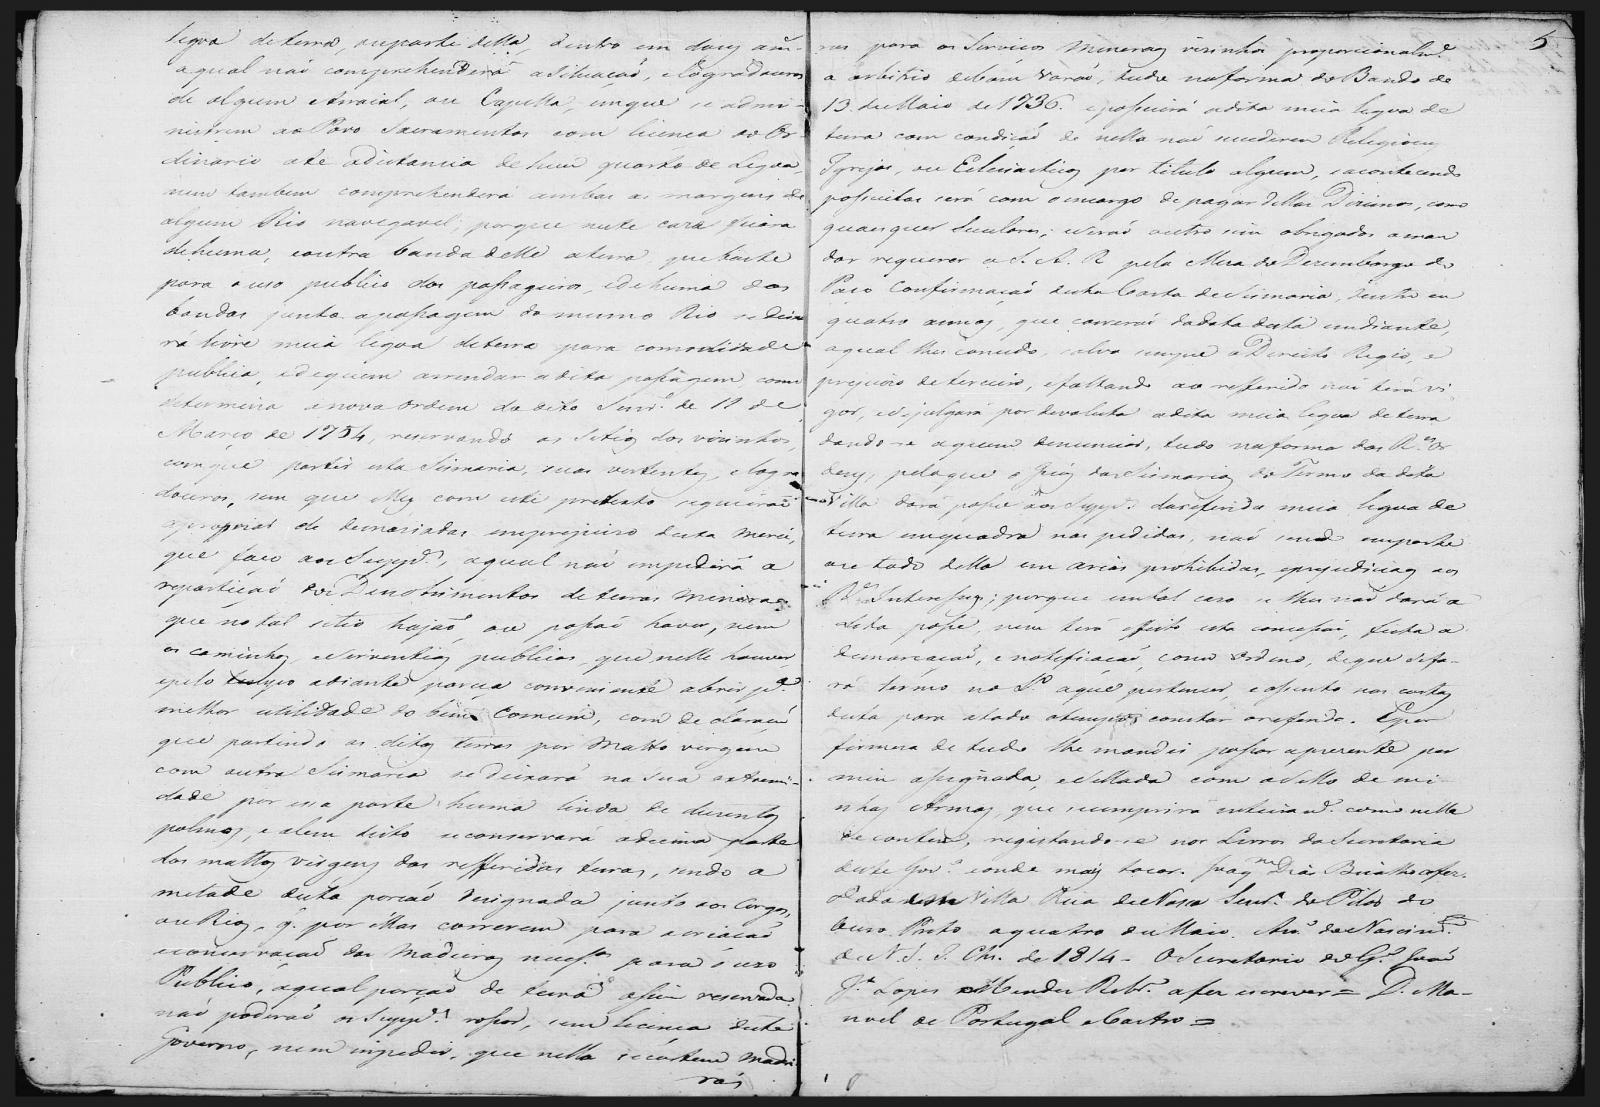 legoa de terra, ou parte della, dentro em dous an-
a qual naõ comprehenderá a situaçaõ, e Logradouros
de algum Arraial, ou Capella, em que se admi-
nistrem ao Povo Sacramentos com licença do Or-
dinario até adistancia de hum quarto de Legoa,
nem tambem comprehenderá ambas as margens de
algum Rio navegavel; porque neste cazo ficára
de huma, e outra banda delle a terra, que baste
para o uso publico dos passageiros, e de huma das
bandas junto a passagem do mesmo Rio se deixa
rá livre meia legoa de terra para comodidade
publica, e de quem arrendar a dita passagem, como
determina a nova Ordem do dito Senr. de 11 de
Março de 1754, reservando os Sitios dos visinhos,
com que partir esta Sismaria, suas vertentes, e logra
douros, sem que elles com este pretexto se queiraõ
apropriar de demasiadas em prejuizo desta merce,
que faço aos Suppes., a qual naõ impedirá a
repartiçaõ dos Descobrimentos de terras mineraes
que no tal sitio hajaõ, ou possaõ haver, nem
os caminhos, e Serventias publicas, que nelle houver,
e pelo tempo adiante pareça conveniente abrir pa.
melhor utilidade do bem Comum, com declaraçaõ
que partindo as ditas terras por Matto virgem
com outra Sismaria se deixará na sua extremi-
dade por essa parte huma linda de duzentos
palmos, e alem disto se conservará adecima parte
dos mattos virgens das refferidas terras, sendo a
metade desta porçaõ designada junto aos Corgos,
ou Rios, q. por ellas correrem para acriaçaõ
e conservaçaõ das Madeiras necess.as para o uzo
Publico, a qual porçaõ de terra assim reservada
naõ poderaõ os Suppes. rossar, sem licença deste
Governo, nem impedir, que nella se cortem Madei
ras
5
ras para os Serviços Mineraes visinhos proporcionalm.e
a arbitrio de bom Varaõ, tudo na forma do Bando de
13 de Maio de 1736. e possuirá a dita meia legoa de
terra com condiçaõ de nella naõ sucederem Religioens
Igrejas, ou Eclesiasticos por titulo algum, e acontecendo
possuilas será com o encargo de pagar dellas Dizimos, como
quaes quer Seculares; e seraõ outro sim obrigados a man
dar requerer a S. A. R. pela Meza do Dezembargo do
Paço Confirmaçaõ desta Carta de Sismaria, dentro em
quatro annos, que correraõ da data desta em diante,
a qual lhes concedo, salvo sempre o Direito Regio, e
prejuizo de terceiro, e faltando ao refferido naõ terá vi
gor, e se julgará por devoluta a dita meia legoa de terra
dando-se a quem denunciar, tudo na forma das R.es Or
dens, pelo que o Juiz das Sismarias do Termo da dita
Villa dará posse aos Supp.es da referida meia legoa de
terra em quadra nas pedidas, naõ sendo em parte
ou todo della em areas prohibidas, e prejudiciaes aos
R.es Interesses; porque em tal cazo se lhes naõ dará a
dita posse, nem terá effeito esta concessaõ, feita a
demarcaçaõ, e notificaçaõ, como ordeno, de que se fa-
rá termo no L.o aque pertencer, e assento nas costas
desta para a todo otempo constar o refferido. E por
firmeza de tudo lhe mandei passar a prezente por
mim assignada, e Sellada com o Sello de mi
nhas Armas, que se cumprirá inteiram.e como nella
se contem, registando-se nos Livros da Secretaria
deste Gov.o e onde mais tocar. Joaq.m Dias Bicalho a fez.
Dada em Villa Rica de Nossa Senr.a do Pilar do
Ouro Preto a quatro de Maio. An.o do Nascim.to
de N. S. J. Ch. de 1814 - O Secretario do G.o Joaõ
J.e Lopes Mendes Ribr.o a fez escrever = D. Ma-
noel de Portugal e Castro =